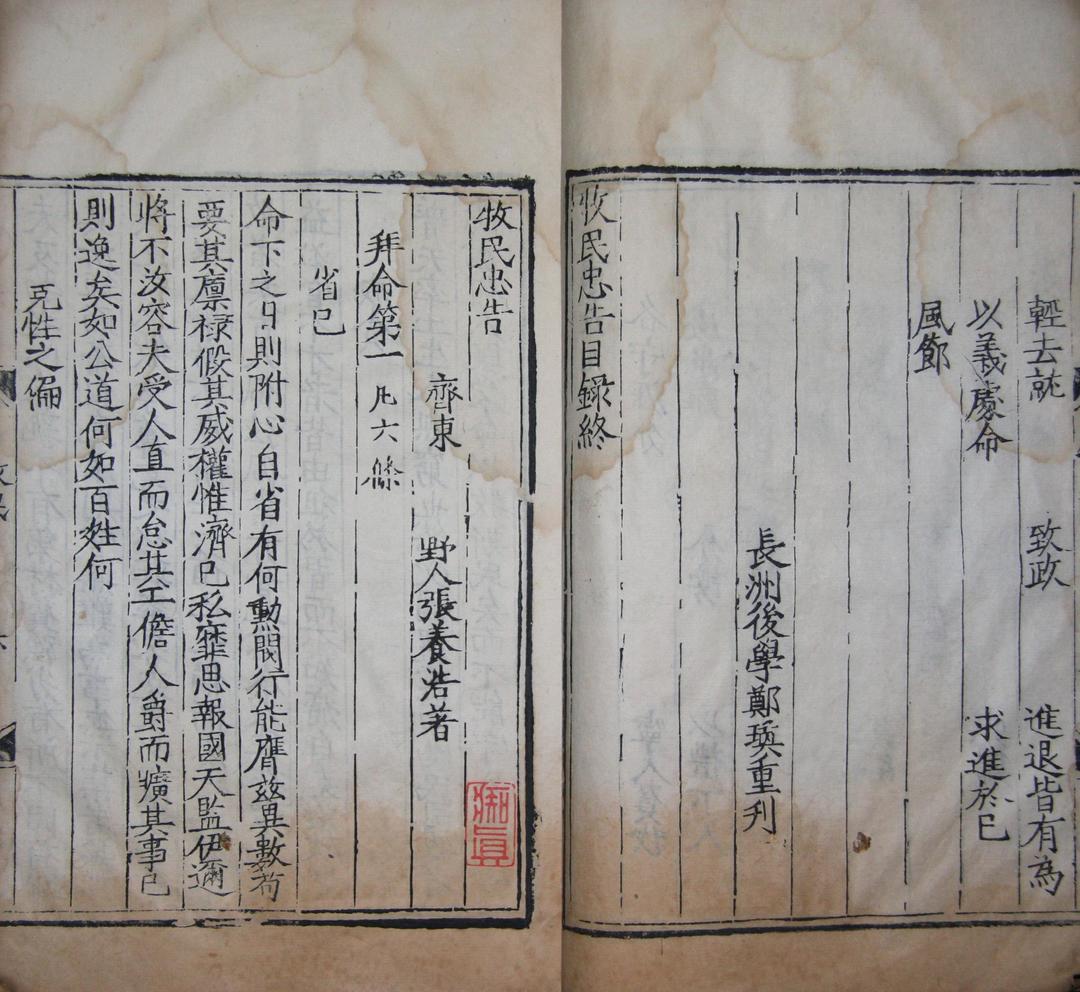 輕去就 致政 進退皆有為
以義處命 求進於己
風節
長洲後學鄭瑛重刋
牧民忠告目錄終
牧民忠告
齊東 野人張養浩著
拜命第一 凡六條
省己
命下之日則附心自省有何勲閥行能膺兹異數苟
要其廪禄假其威權惟濟己私靡思報國天監伊邇
將不汝容夫受人直而怠其工儋人爵而曠其事己
則逸矣如公道何如百姓何
克性之偏
痴真